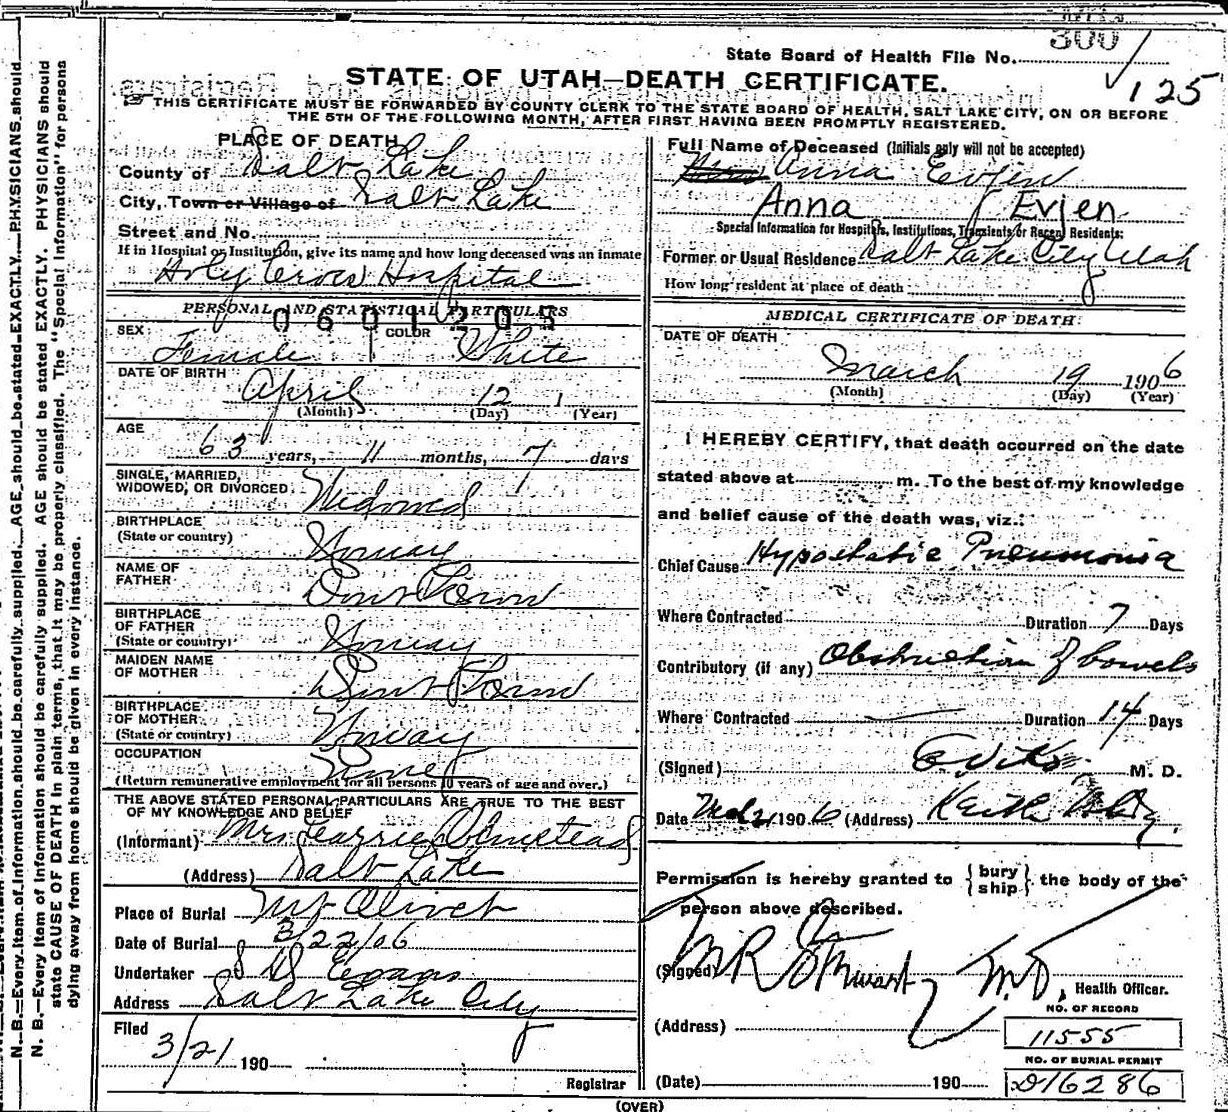 300
State Board of Health File No.
125
STATE OF UTAH—DEATH CERTIFICATE.
THIS CERTIFICATE MUST BE FORWARDED BY COUNTY CLERK TO THE STATE BOARD OF HEALTH, SALT LAKE CITY, ON OR BEFORE
THE 5TH OF THE FOLLOWING MONTH, AFTER FIRST HAVING BEEN PROMPTLY REGISTERED.
PLACE OF DEATH
County of Salt Lake
City, Town or Village of Salt Lake
Street and No.
If in Hospital or Institution, give its name and how long deceased was an inmate
Holy Cross Hospital
PERSONAL AND STATISTICAL PARTICULARS
0601205
SEX Female COLOR White
DATE OF BIRTH
April 12
(Month) (Day) (Year)
AGE
63 years, 11 months, 7 days
SINGLE, MARRIED,
WIDOWED, OR DIVORCED Widowed
BIRTHPLACE
(State or country) Norway
NAME OF
FATHER Dont Know
BIRTHPLACE
OF FATHER
(State or country) Norway
MAIDEN NAME
OF MOTHER Dont Know
BIRTHPLACE
OF MOTHER
(State or country) Norway
OCCUPATION None
(Return remunerative employment for all persons 10 years of age and over.)
THE ABOVE STATED PERSONAL PARTICULARS ARE TRUE TO THE BEST
OF MY KNOWLEDGE AND BELIEF
(Informant) Mrs Carrie Olmstead
(Address) Salt Lake
Place of Burial Mt Olivet
Date of Burial 3/22/06
Undertaker S D Evans
Address Salt Lake City
Filed
3/21 190
Registrar
Full Name of Deceased (Initials only will not be accepted)
Anna Evjen
Anna Evjen
Special Information for Hospitals, Institutions, Transients or Recent Residents:
Former or Usual Residence Salt Lake City Utah
How long resident at place of death
MEDICAL CERTIFICATE OF DEATH.
DATE OF DEATH
March 19 1906
(Month) (Day) (Year)
I HEREBY CERTIFY, that death occurred on the date
stated above at m. To the best of my knowledge
and belief cause of the death was, viz.:
Chief Cause Hypostatic Pneumonia
Where Contracted Duration 7 Days
Contributory (if any) Obstruction of bowels
Where Contracted Duration 14 Days
(Signed) M. D.
Date 1906 (Address) Keith
Permission is hereby granted to { bury
ship } the body of the
person above described.
(Signed) M R Stewart M.D., Health Officer.
(Address)
NO. OF RECORD
11555
NO. OF BURIAL PERMIT
(Date) 190 D16286
(OVER)
N. B.—Every item of information should be carefully supplied. AGE should be stated EXACTLY. PHYSICIANS should
N. B.—Every item of information should be carefully supplied. AGE should be stated EXACTLY. PHYSICIANS should
state CAUSE OF DEATH in plain terms, that it may be properly classified. The "Special Information" for persons
dying away from home should be given in every instance.